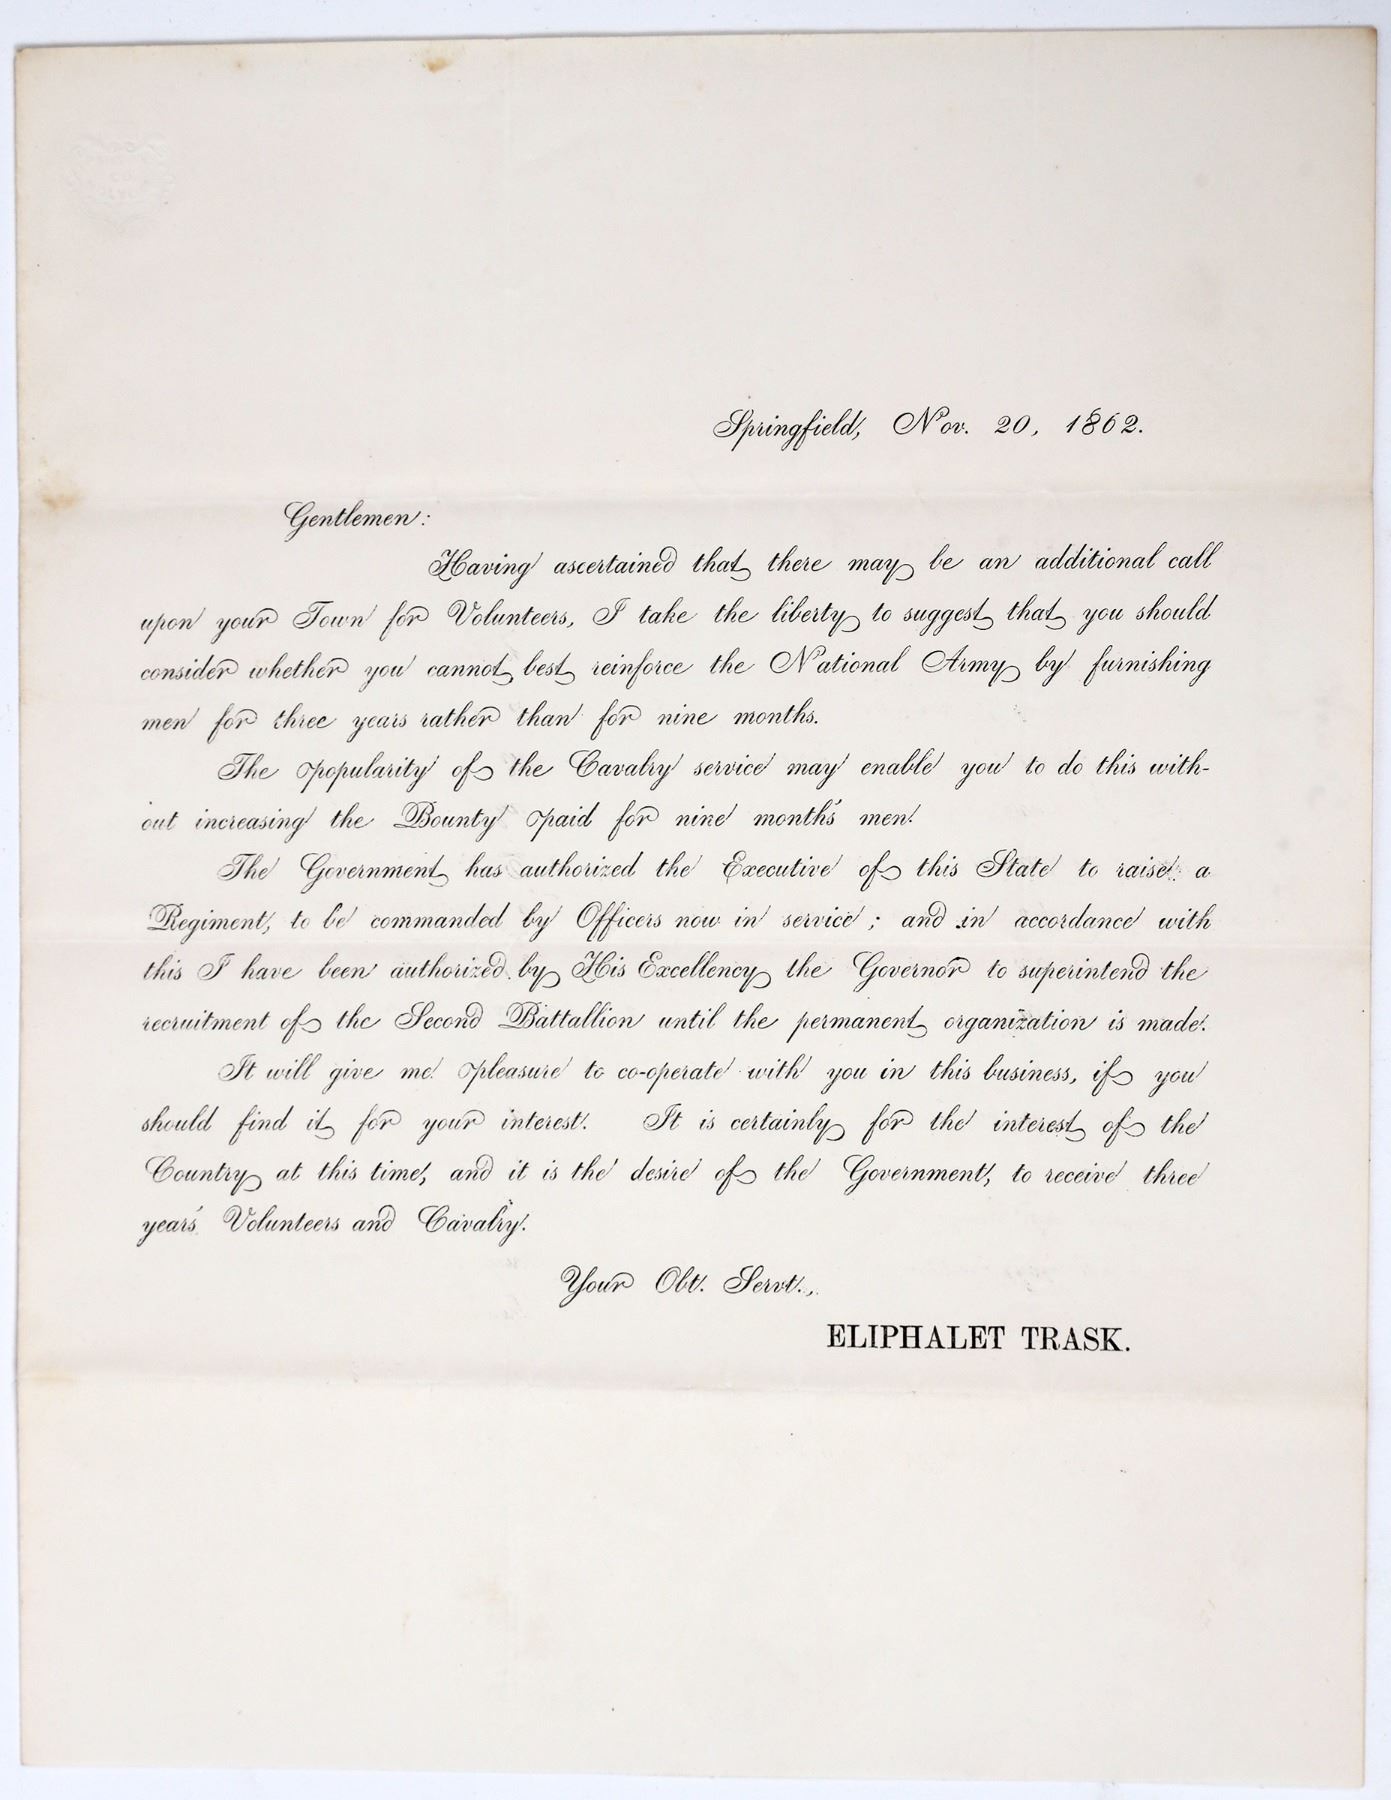 Springfield, Nov. 20, 1862.
Gentlemen:
Having ascertained that there may be an additional call
upon your Town for Volunteers, I take the liberty to suggest that you should
consider whether you cannot best reinforce the National Army by furnishing
men for three years rather than for nine months.
The popularity of the Cavalry service may enable you to do this with-
out increasing the Bounty paid for nine month's men.
The Government has authorized the Executive of this State to raise a
Regiment, to be commanded by Officers now in service; and in accordance with
this I have been authorized by His Excellency the Governor to superintend the
recruitment of the Second Battallion until the permanent organization is made.
It will give me pleasure to co-operate with you in this business, if you
should find it for your interest. It is certainly for the interest of the
Country at this time, and it is the desire of the Government, to receive three
year's Volunteers and Cavalry.
Your Obt. Servt.,
ELIPHALET TRASK.